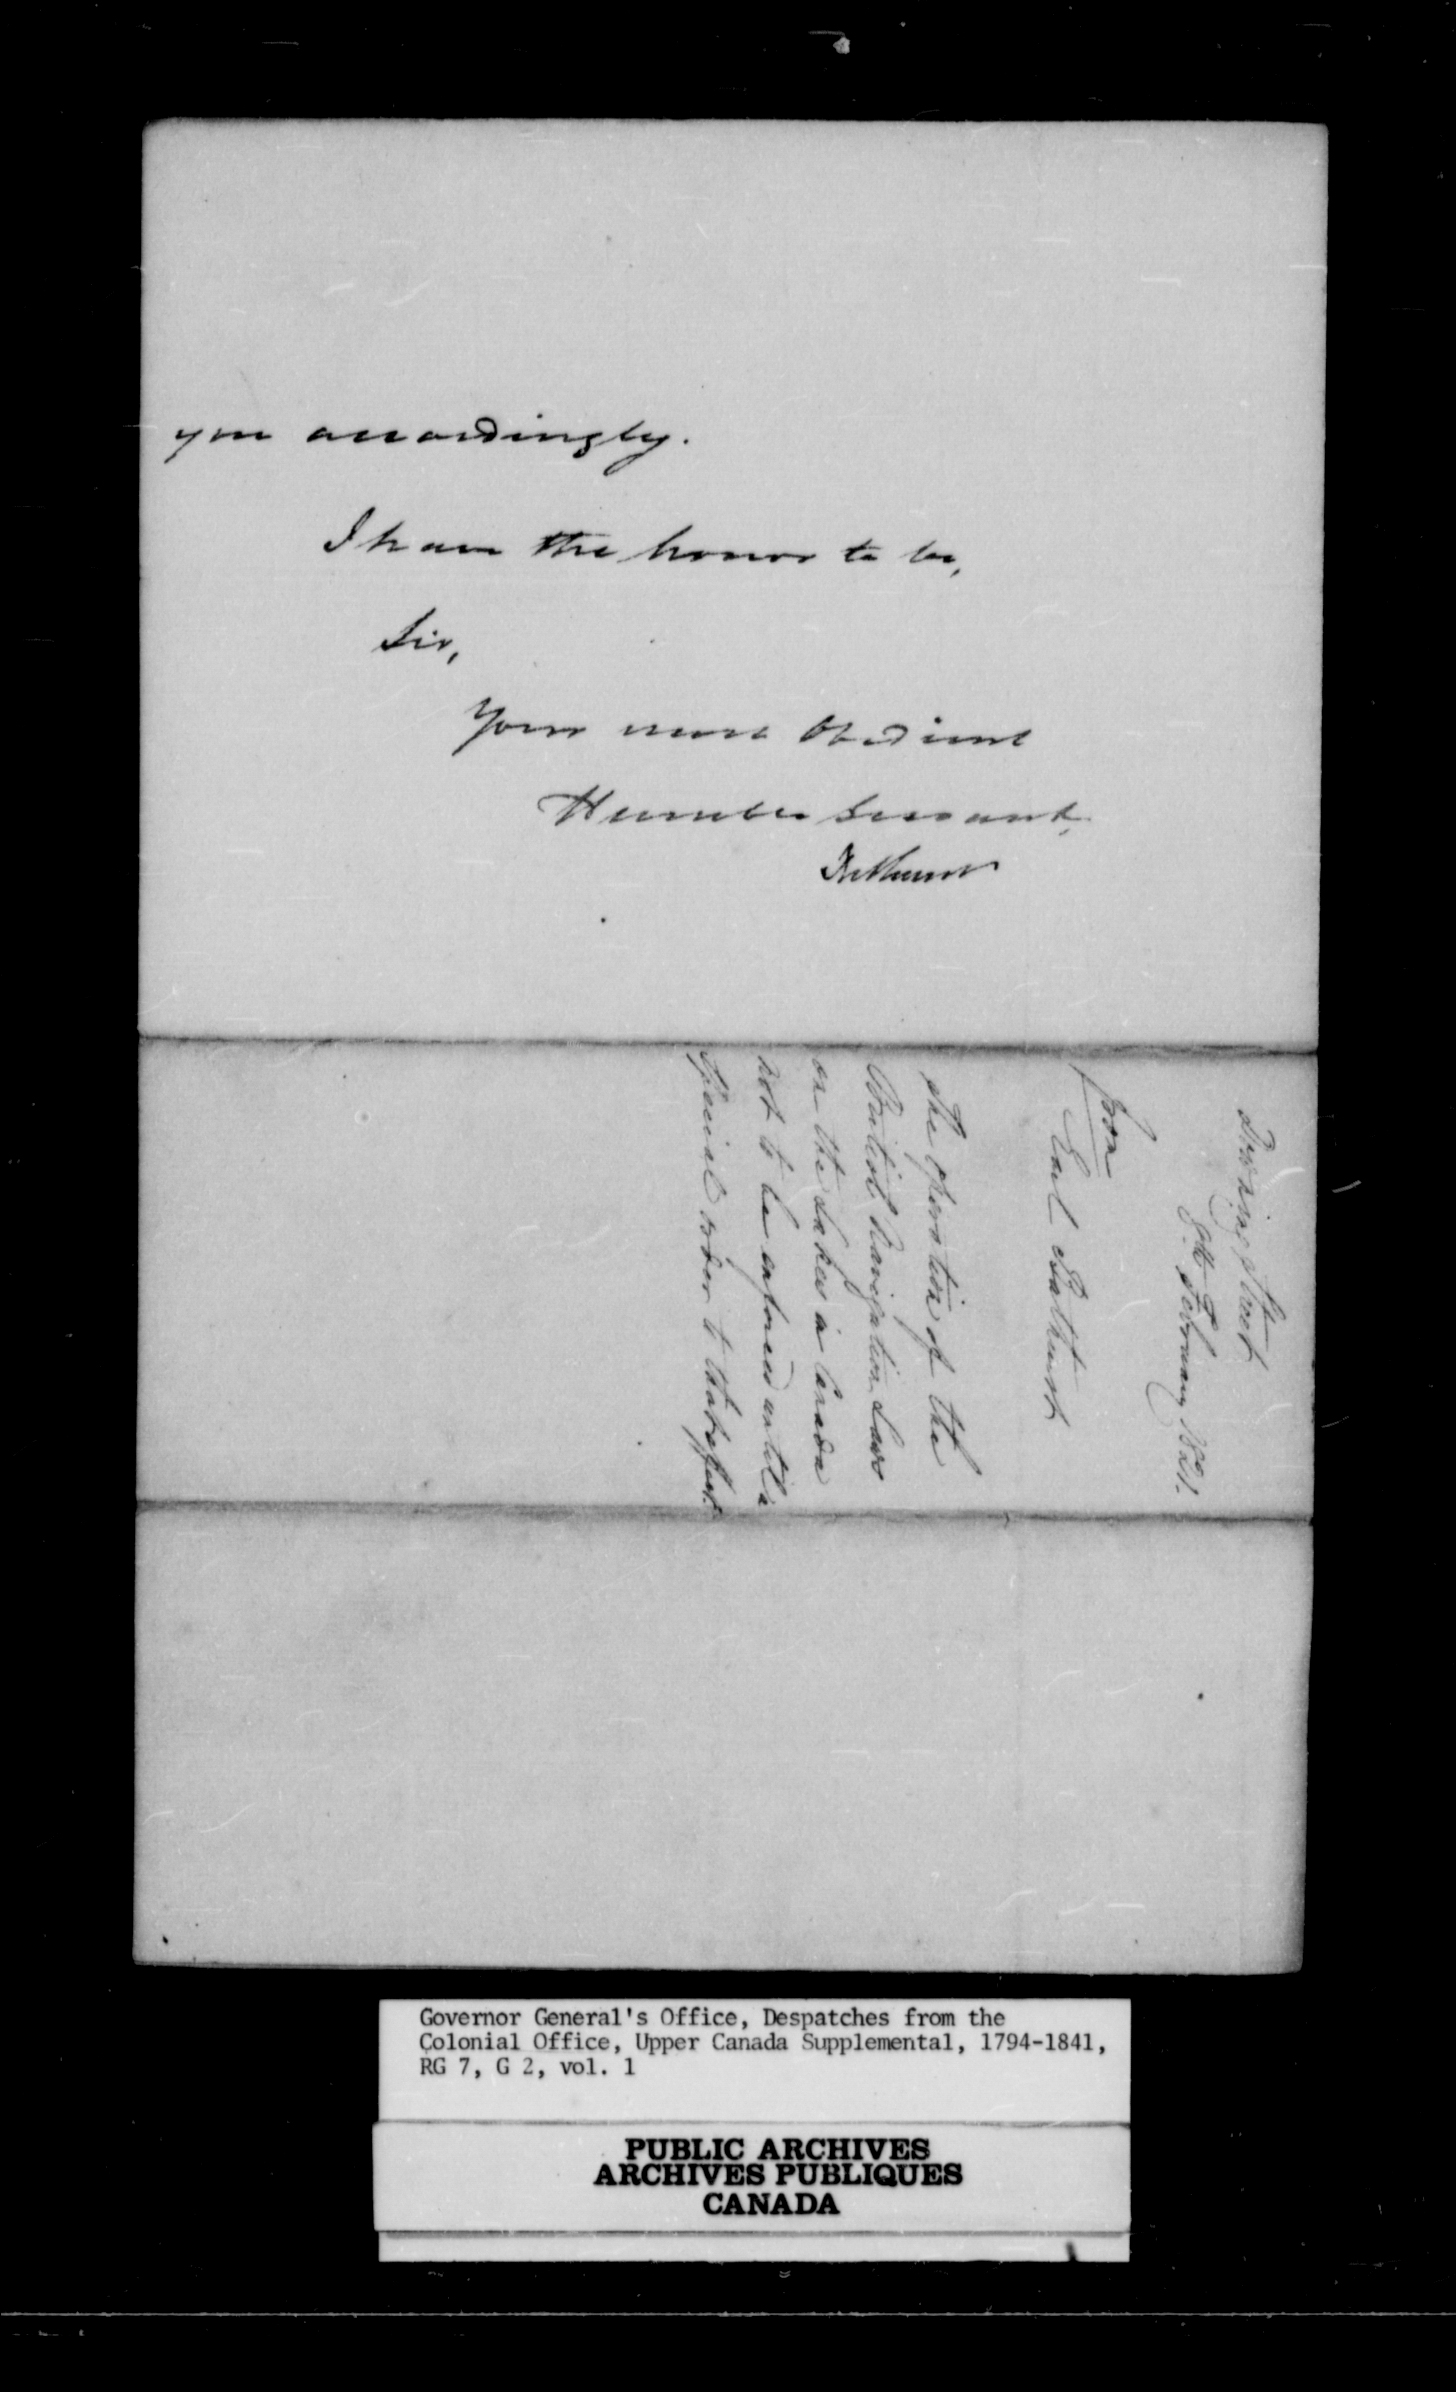 you accordingly.
I have the honor to be,
Sir,
Your most Obedient
Humble Servant,
Bathurst
Downing Street
8th February 1821.
from
Earl Bathurst
The operation of the
British Navigation Laws
on the Lakes in Canada
not to be enforced until a
special order to that effect.
Governor General's Office, Despatches from the
Colonial Office, Upper Canada Supplemental, 1794-1841,
RG 7, G 2, vol. 1
PUBLIC ARCHIVES
ARCHIVES PUBLIQUES
CANADA